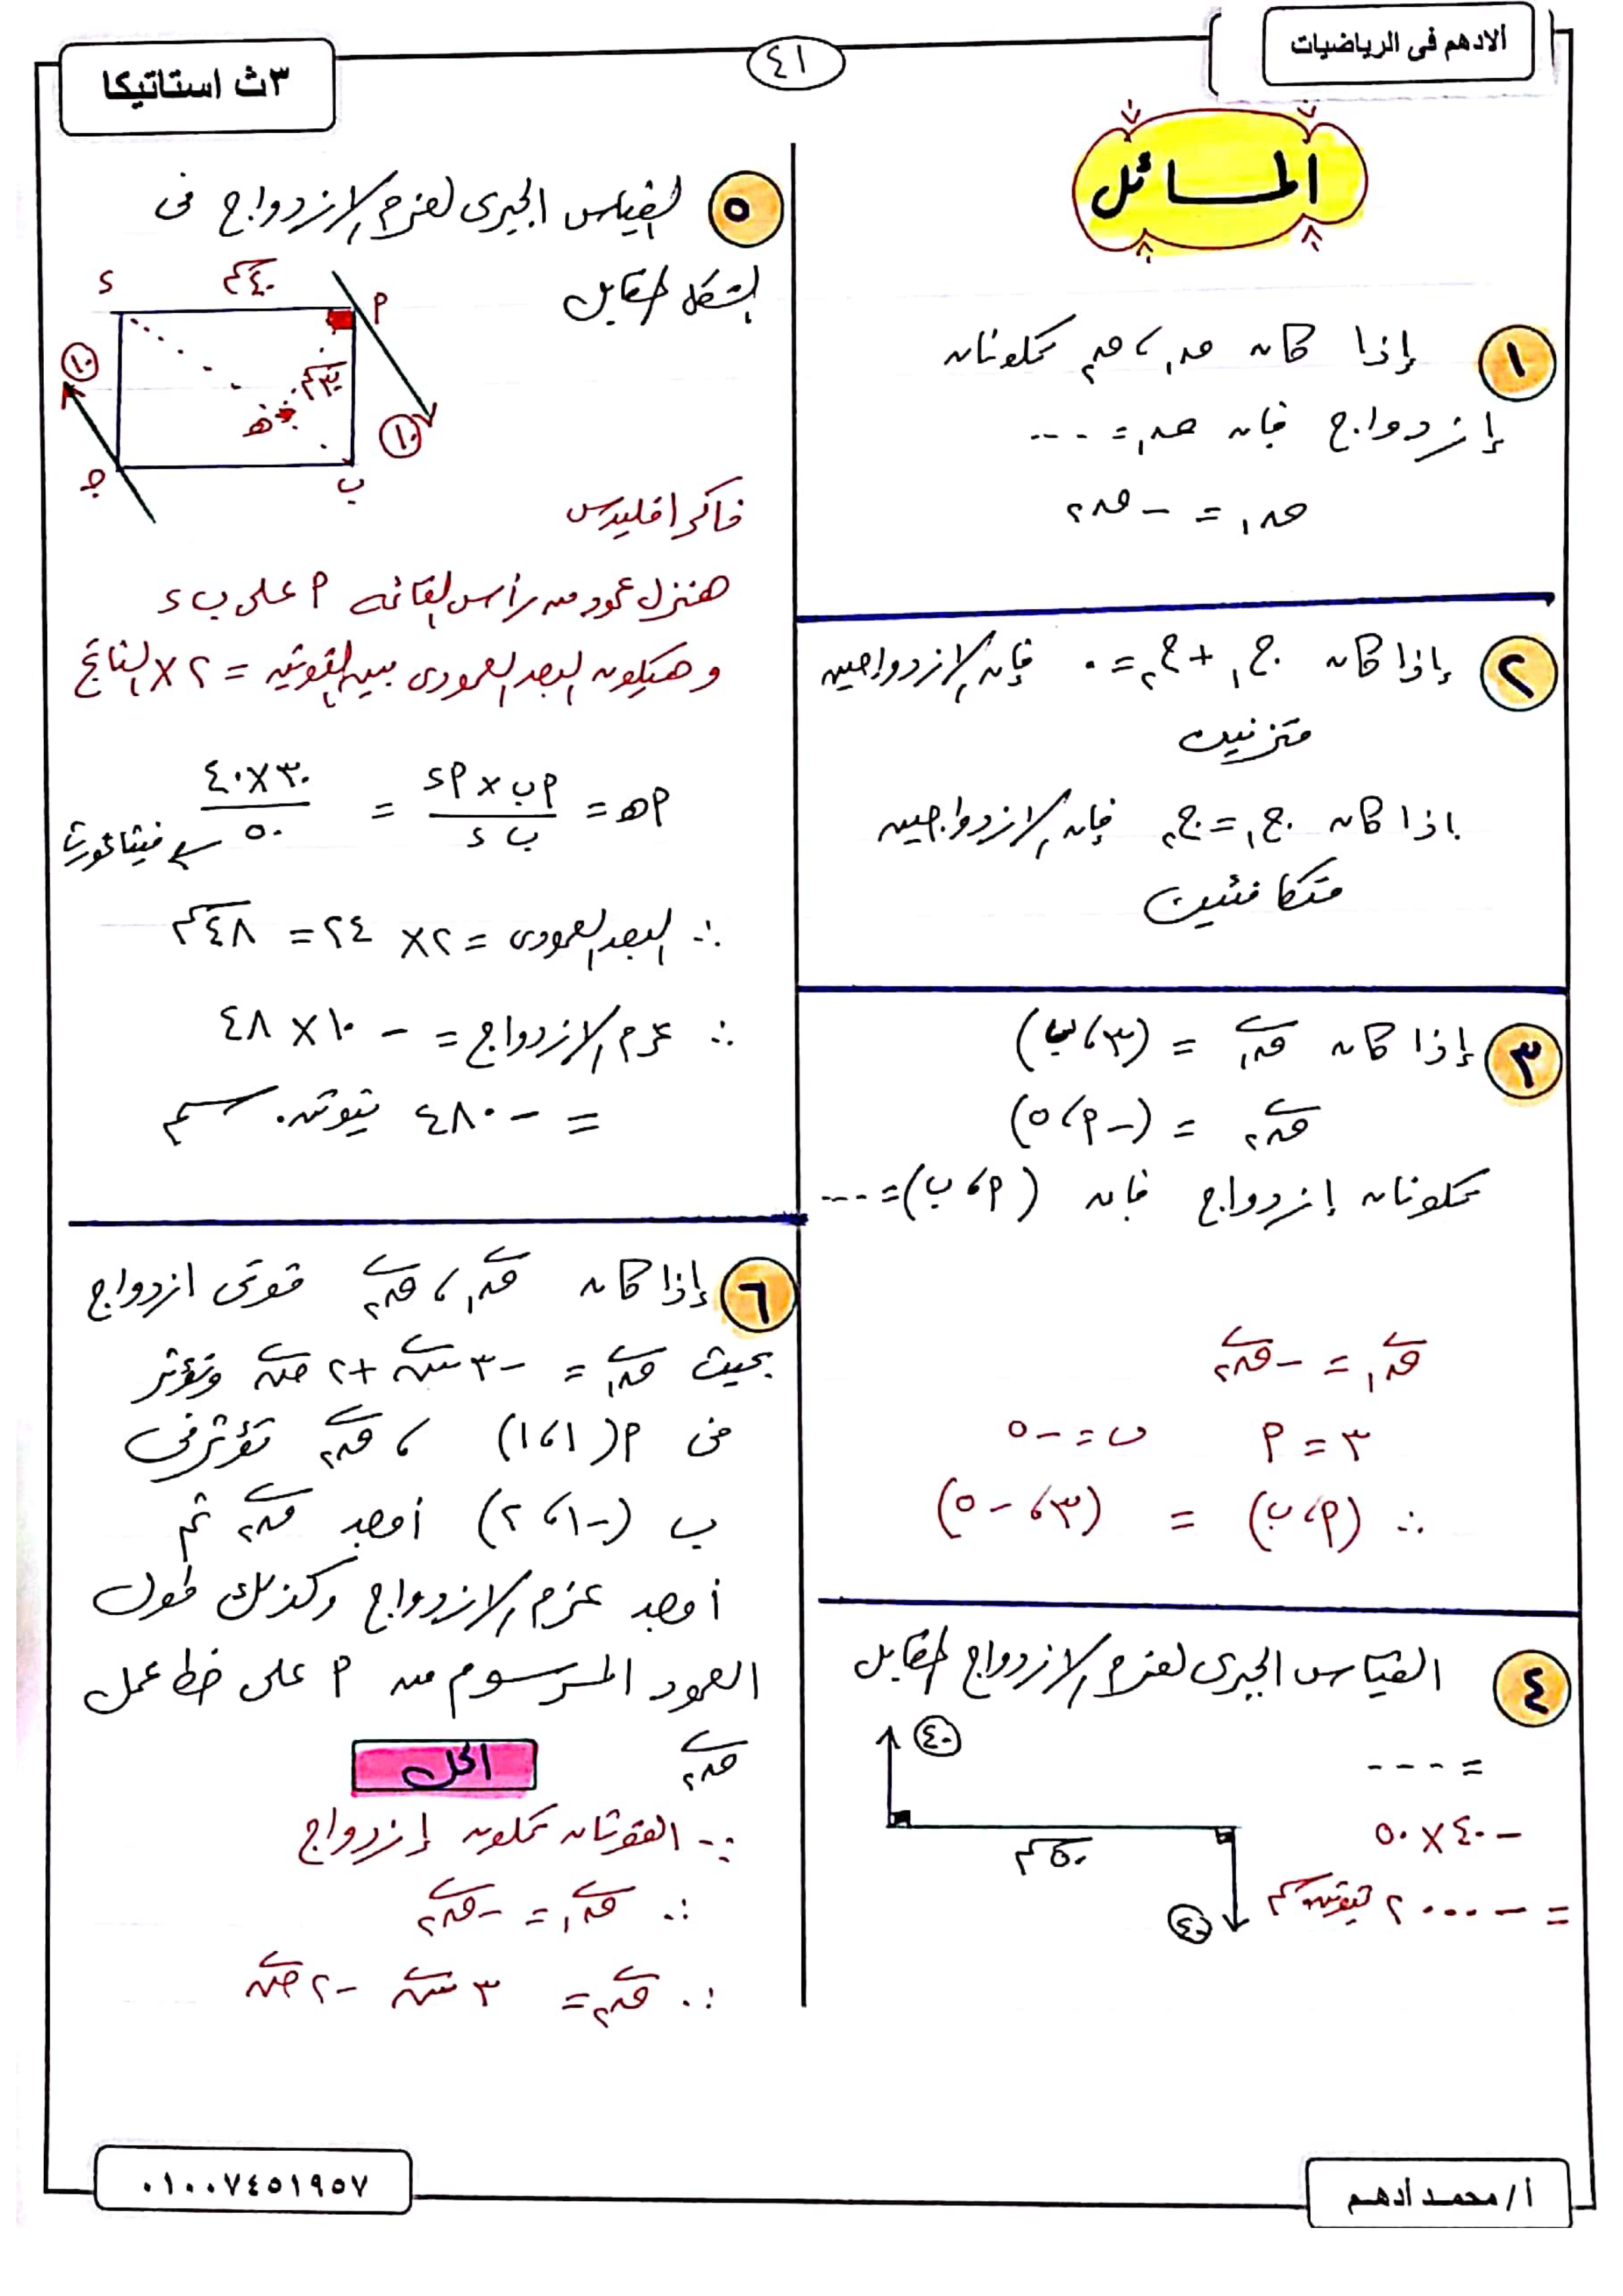 ألادهم فى الرياضيات
٤١
٣ث استاتيكا
المسائل
١ إذا كان ق١ ، ق٢ تكونان
إزدواج فإن ق١ = ---
ق١ = - ق٢
٢ إذا كان ج١ + ج٢ = ٠ فإن الازدواجين
متزنين
إذا كان ج١ = ج٢ فإن الازدواجين
متكافئين
٣ إذا كان ق١ = (٣ ، ب)
ق٢ = (- م ، ٥)
تكونان إزدواج فإن (م ، ب) = ---
ق١ = - ق٢
م = ٣ ب = - ٥
∴ (م ، ب) = (٣ ، - ٥)
٤ القياس الجبرى لعزم الازدواج المقابل
= ---
٤٠
٥٠ سم
٤٠
- ٤٠ × ٥٠
= - ٢٠٠٠ نيوتن.سم
٥ القياس الجبرى لعزم الازدواج فى
الشكل المقابل
ء ٤٠ سم م
١٠ ٣٠ سم ١٠
ھ
ج ب
فاكر اقليدس
هننزل عمود من رأس القائمة م على ب ء
وهيكون البعد العمودى بين القوتين = ٢ × الناتج
م ھ = م ب × م ء / ب ء = ٣٠ × ٤٠ / ٥٠ فيثاغورث
∴ البعد العمودى = ٢ × ٢٤ = ٤٨ سم
∴ عزم الازدواج = - ١٠ × ٤٨
= - ٤٨٠ نيوتن.سم
٦ إذا كان ق١ ، ق٢ قوتى ازدواج
بحيث ق١ = - ٣ س + ٢ ص وتؤثر
فى م (١ ، ١) ، ق٢ تؤثر فى
ب (- ١ ، ٢) أوجد ق٢ ثم
أوجد عزم الازدواج وكذلك طول
العمود المرسوم من م على خط عمل
ق٢
الحل
∵ القوتان تكون إزدواج
∴ ق١ = - ق٢
∴ ق٢ = ٣ س - ٢ ص
أ/ محمد أدهم
٠١٠٠٧٤٥١٩٥٧